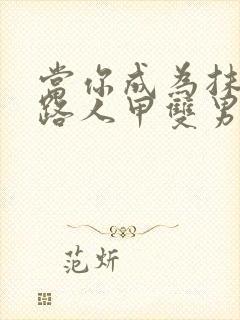 當你成為抹
路人甲雙男
范炘